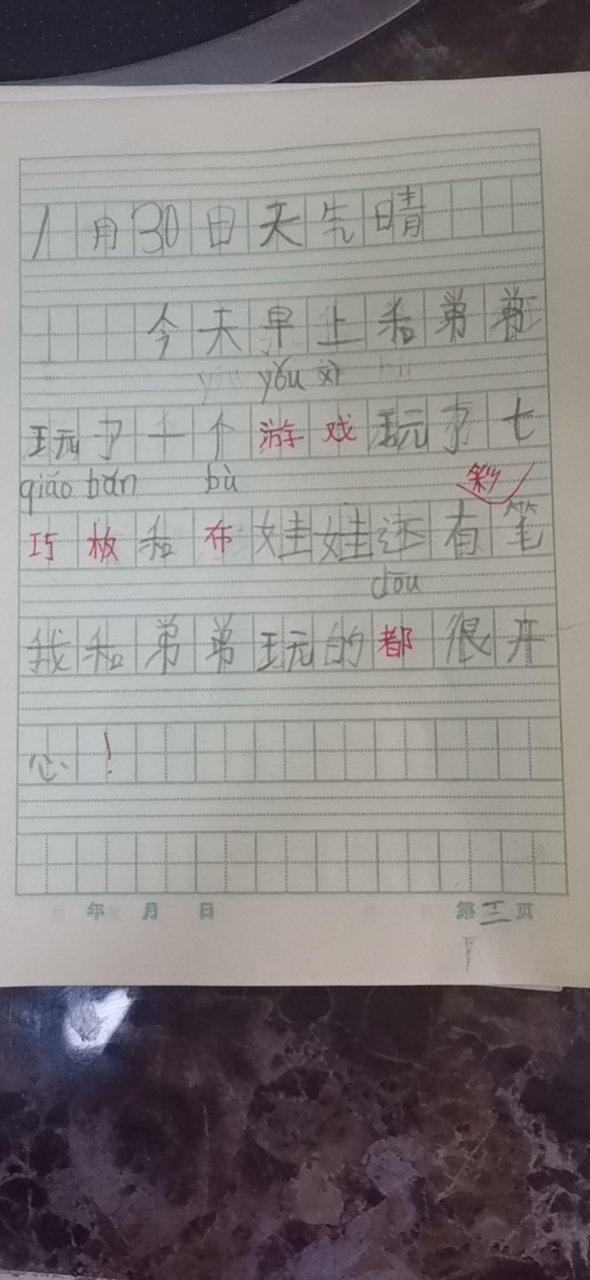 1月30日天气晴
今天早上和弟弟
yóu xì
玩了一个游戏玩了七
qiǎo bǎn bù 彩
巧板和布娃娃还有笔
dōu
我和弟弟玩的都很开
心！
年 月 日 第三页